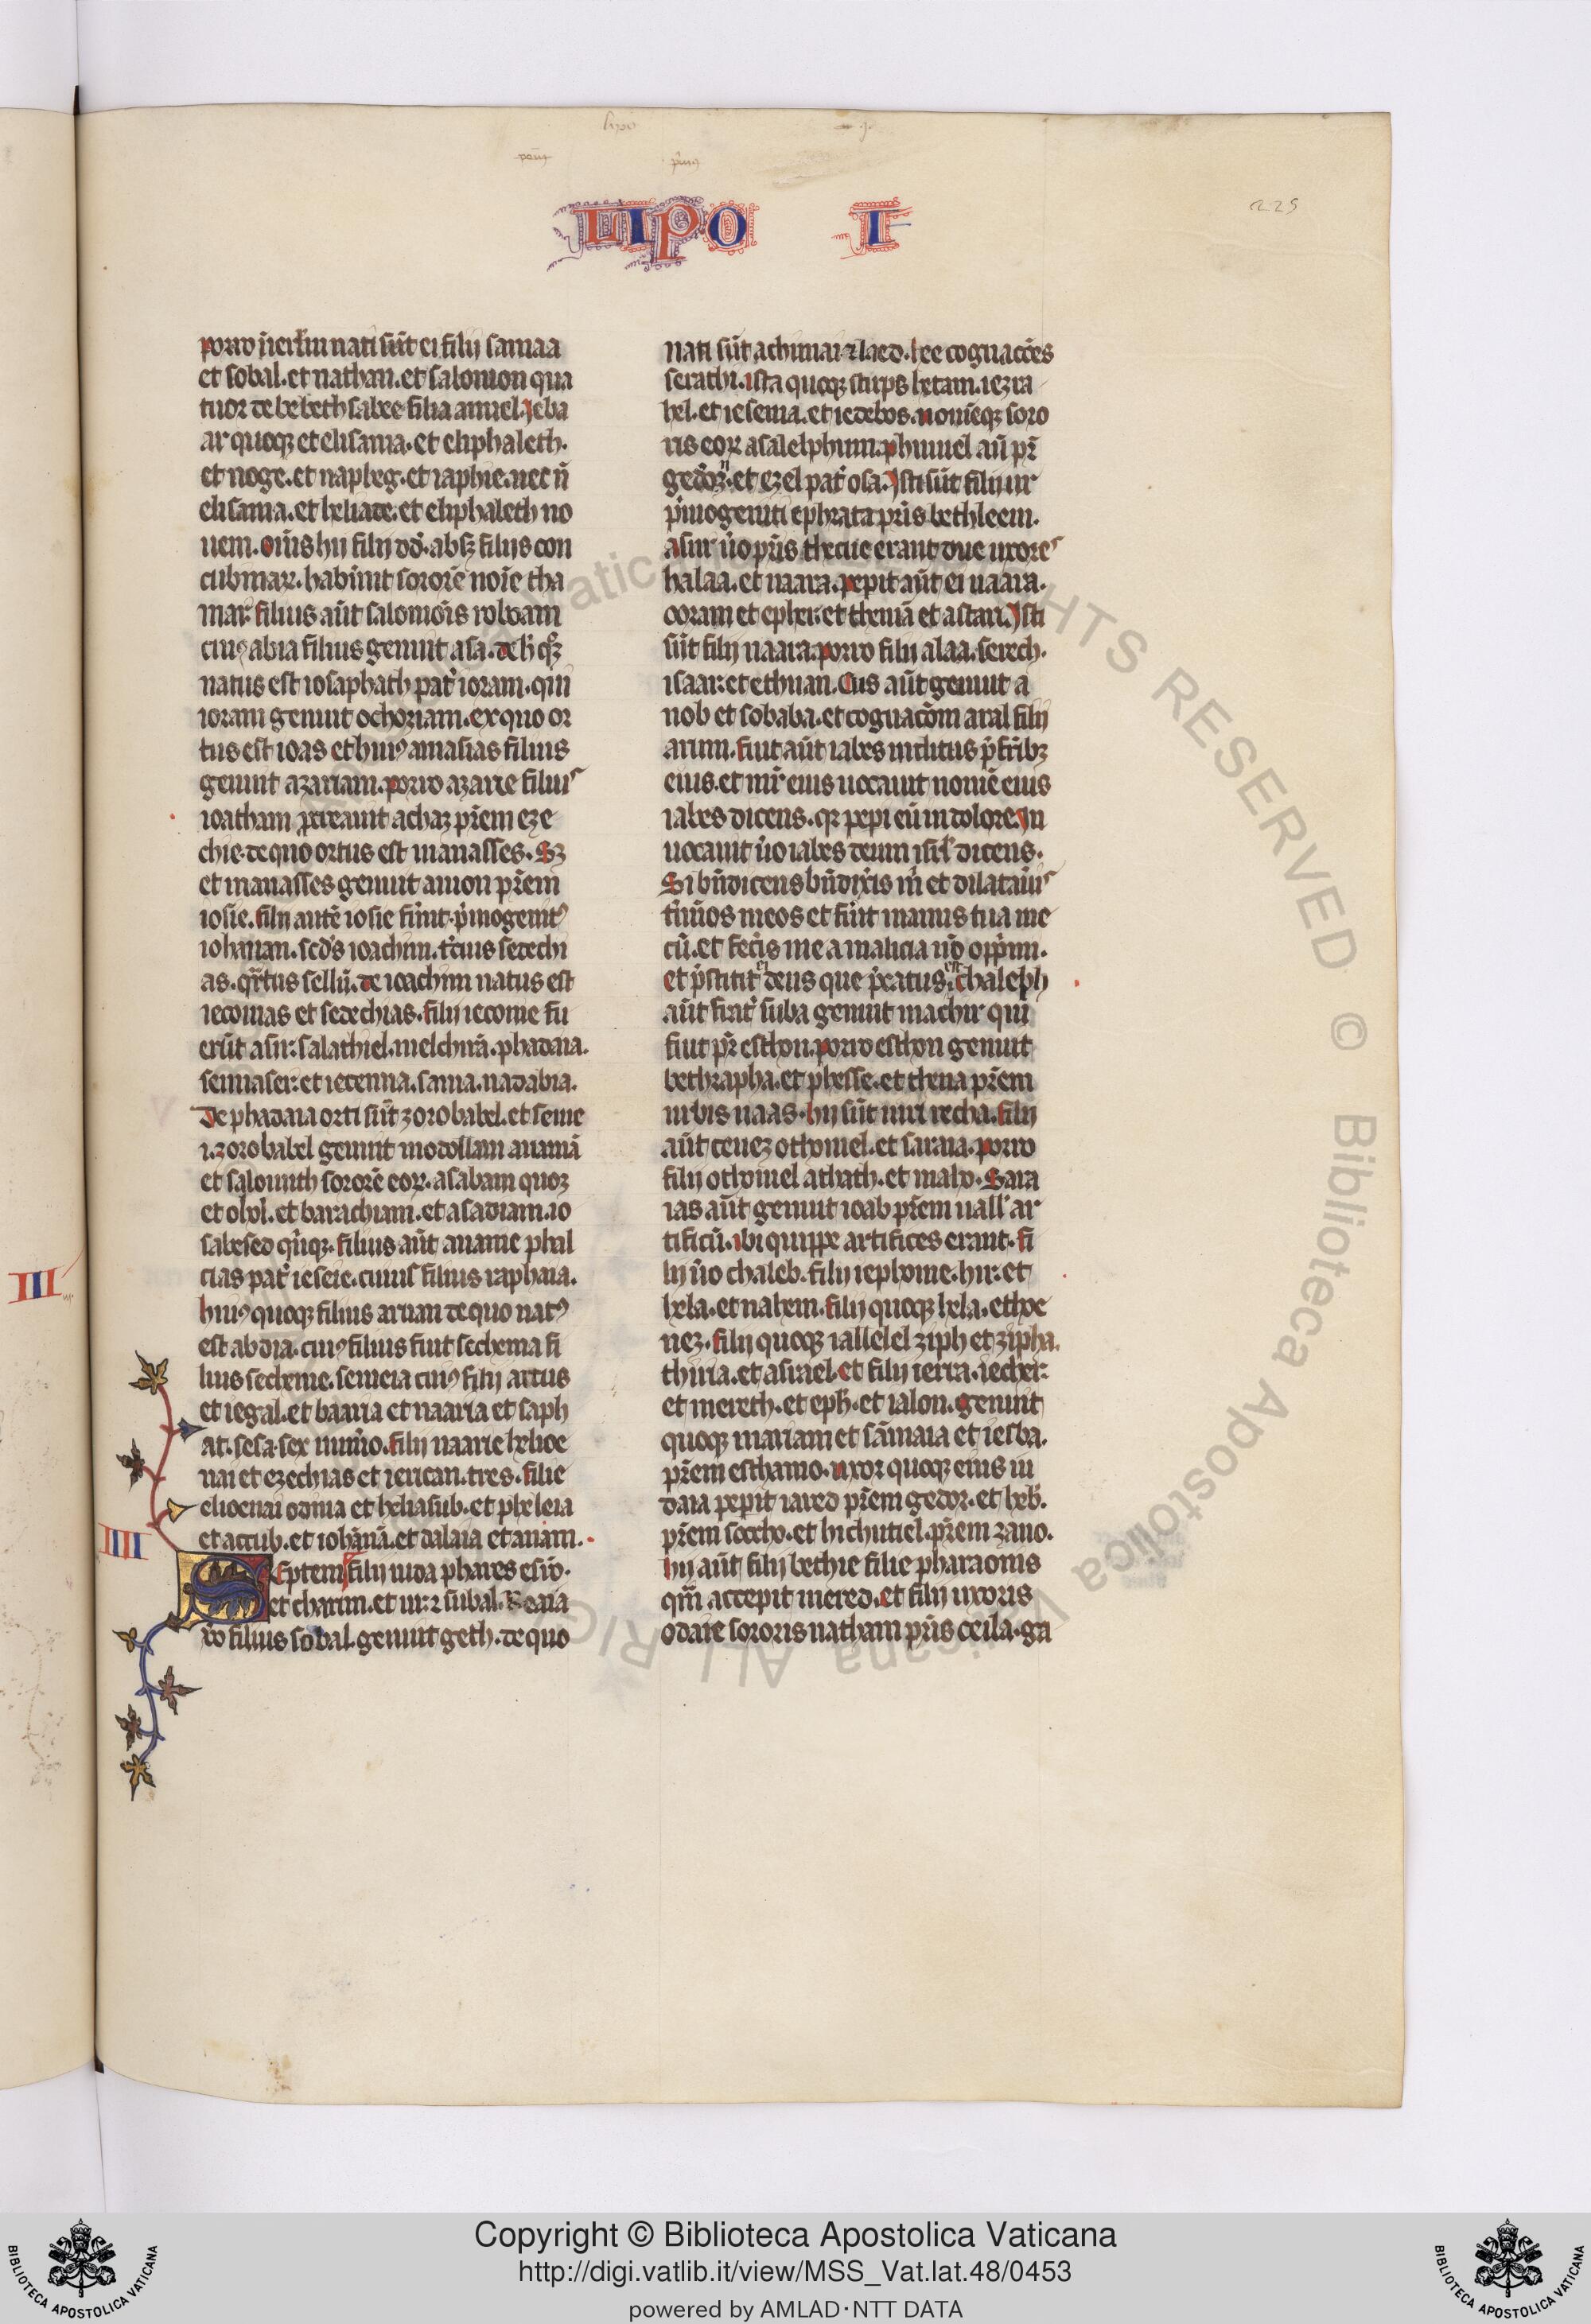 lipo
j
pom9
pm9
LIPO I
225
porro i ierl̅m nati sūt ei filij samaa
et sobal. et nathan. et salomon qua
tuor de bebeth sabee filia amiel. Jeba
ar quoqꝫ et elisama. et eliphaleth.
et noge. et napheg. et iaphie. nec n̄
elisama. et heliade. et eliphaleth no
uem. om̄s hii filij dd̄. absqꝫ filijs con
cubinaꝝ. habūnt sororē noīe tha
mar. filius aūt salomōis roboam
cuiꝰ abia filius genuit asa. de h̄ qͦqꝫ
natus est iosaphath pat̄ ioram. qui
ioram genuit ochoziam. ex quo or
tus est ioas et huiꝰ amasias filius
genuit azariam. porro azarie filius
ioatham procreauit achaz pr̄em eze
chie. de quo ortus est manasses. Sꝫ
et manasses genuit amon pr̄em
iosie. filij autē iosie fūnt. pͥmogenitꝰ
iohanan. scd̄s ioachim. tc̄ius sedechi
as. qr̄tus sellū. de ioachim natus est
ieconias et sedechias. filij ieconie fu
erūt asir. salathiel. melchirā. phadaia.
sennaser. et iecenna. sama. nadabia.
De phadaia orti sūt zorobabel. et seme
i. zorobabel genuit mosollam ananiā
et salomith sororē eoꝝ. asabam quoqꝫ
et ohol. et barachiam. et asadiam. io
sabesed qͥnqꝫ. filius aūt ananie phal
cias pat̄ ieseie. cuius filius raphaia.
huiꝰ quoqꝫ filius arnan de quo natꝰ
est abdia. cuiꝰ filius fuit sechema fi
lius secheme. semeia cuiꝰ filij attus
et iegal. et baaria et naaria et saph
at. sesa. sex numͦo. filij naarie helioe
nai et ezechias et iericam. tres. filie
elioenai oduia et heliasub. et pheleia
et accub. et iohānā. et dalaia et anani.
Septem filij iuda phares esrō.
et charmi. et ur. ⁊ subal. Reaia
v̄o filius sobal. genuit geth. de quo
III
IIII
nati sūt achimai ⁊ laed. hee cognac̄oēs
serathi. ista quoqꝫ stirps hetam. iezra
hel. et iesema. et iedebos. nomēqꝫ soro
ris eoꝝ asalelphuni. phunuel aūt pr̄
gedor. et ezel pat̄ osa. Isti sūt filij ur
pͥmogeniti ephrata pr̄is bethleem.
asur ūo pr̄is thecue erant due uxores
halaa. et naara. peperit aūt ei naara.
ooram et epher. et themā et astari. Isti
sūt filij naara. porro filij alaa. serech.
isaar. et ethnan. Cus aūt genuit a
nob et sobaba. et cognac̄oēm aral filij
arum. fuit aūt iabes inclitus p̄ fr̄ibꝫ
eius. et mr̄ eius uocauit nomē eius
iabes dicens. qꝛ pepi eū in dolore. In
uocauit ūo iabes deum isrl̅ dicens.
Si bn̄dicens bn̄dixīs m̄ et dilataūis
tīnos meos et fūit manus tua me
cū. et fecīs me a malicia nō opprimi.
et p̄stitit ei deus que p̄catus est. chaleph
aūt frat̄ suba genuit machir qui
fuit pr̄ esthon. porro esthon genuit
bethrapha. et phesse. et thena pr̄em
urbis naas. hij sūt uiri recha. filij
aūt cenez othoniel. et saraia. porro
filij othoniel athath. et maho. Sara
ias aūt genuit ioab pr̄em uall̄ ar
tificū. ibi quippe artifices erant. fi
lij ūo chaleb. filij iephonie. hir. et
hela. et nahem. filij quoqꝫ hela. et he
nez. filij quoqꝫ iallelel ziph et zipha.
thiria. et asrael. et filij iezra. iether.
et mereth. et eph̄. et ialon. genuit
quoqꝫ mariam et sāmaia et iesba.
pr̄em esthamo. uxor quoqꝫ eius iu
daia pepit iared pr̄em gedor. et heb̄.
pr̄em soccho. et hichutiel. pr̄em zano.
hij aūt filij bethie filie pharaonis
qm̄ accepit mered. et filij uxoris
odaie sororis natham pr̄is ceila. ga
ALL RIGHTS RESERVED © Biblioteca Apostolica Vaticana
Copyright © Biblioteca Apostolica Vaticana
http://digi.vatlib.it/view/MSS_Vat.lat.48/0453
powered by AMLAD·NTT DATA
BIBLIOTECA APOSTOLICA VATICANA
BIBLIOTECA APOSTOLICA VATICANA